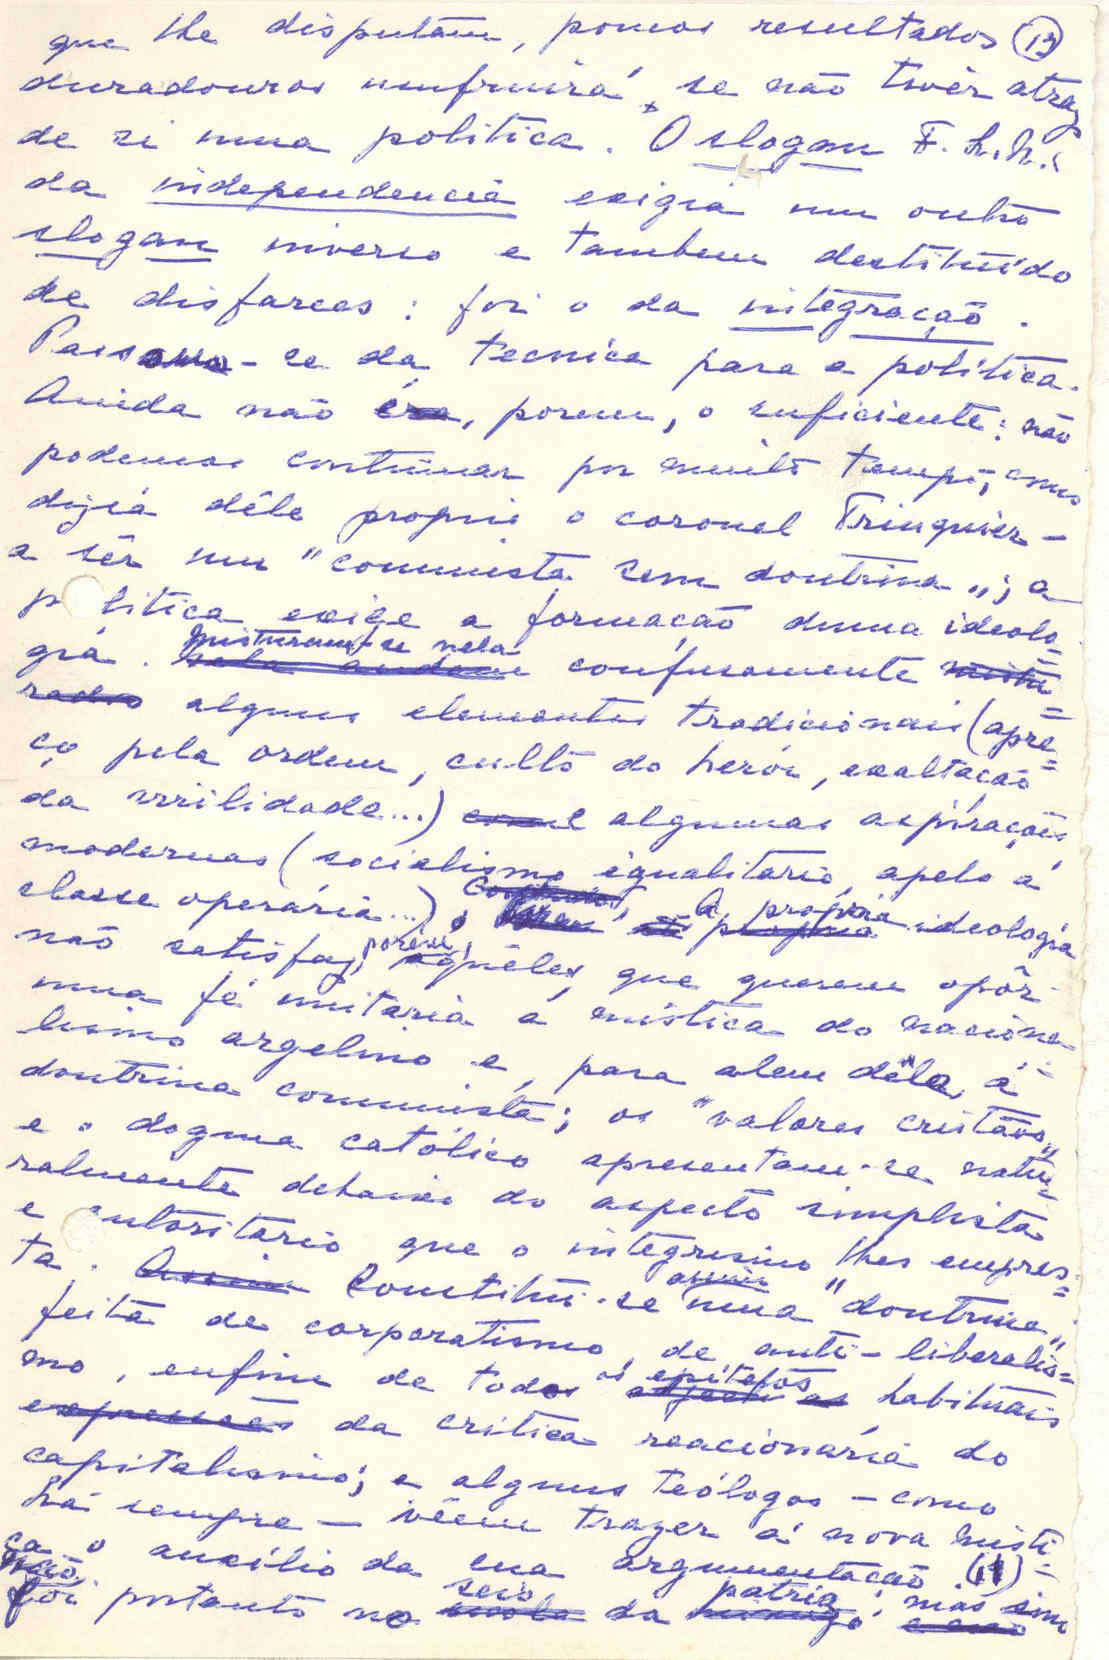 que lhe disputam, poucos resultados (13)
duradouros usufruirá, se não tiver atraz
de si uma politica. O slogan F.L.N.
da independencia exigia um outro
slogan inverso e tambem destituído
de disfarces: foi o da integração.
Passava-se da tecnica para a política.
Ainda não era, porem, o suficiente: não
podemos continuar por muito tempo, como
dizia dêle proprio o coronel Trinquier -
a sêr um "comunista sem doutrina"; a
politica exige a formação duma ideolo-
gia. Misturam-se nela confusamente
alguns elementos tradicionais (apre-
ço pela ordem, culto do herói, exaltação
da virilidade...) e algumas aspirações
modernas (socialismo igualitario, apelo á
classe operária...). A propria ideologia
não satisfaz, porém, aquêles, que querem opôr
uma fé unitaria á mistica do naciona-
lismo argelino e, para alem dela, á
doutrina comunista; os "valores cristãos"
e o dogma católico apresentam-se natu-
ralmente debaixo do aspecto simplista
e autoritario que o integrismo lhes empres-
ta. Constitui-se assim uma "doutrina"
feita de corporatismo, de anti-liberalis-
mo, enfim de todos os epítetos habituais
da critica reacionaria do
capitalismo; e alguns teólogos - como
há sempre - vêem trazer á nova misti-
ca o auxílio da sua argumentação (11)
Não foi portanto no seio da patria, mas sim